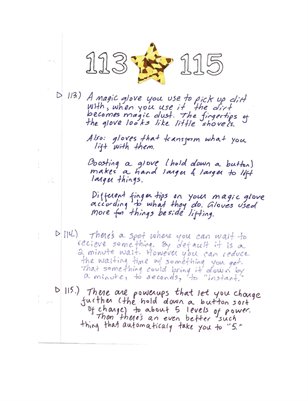 113 115
▷ 113.) A magic glove you use to pick up dirt
with, when you use it the dirt
becomes magic dust. The fingertips of
the glove looks like little shovels.
Also: gloves that transform what you
lift with them.
Boosting a glove (hold down a button)
makes a hand larger & larger to lift
larger things.
Different finger tips on your magic glove
according to what they do. Gloves used
more for things beside lifting.
▷ 114.) There's a spot where you can wait to
recieve something. By default it is a
2 minute wait. However you can reduce
the waiting time of something you get.
That something could bring it down by
a minute, to seconds, to "instant."
▷ 115.) There are powerups that let you charge
further (the hold down a button sort
of charge) to about 5 levels of power.
Then there's an even better such
thing that automaticaly take you to "5."